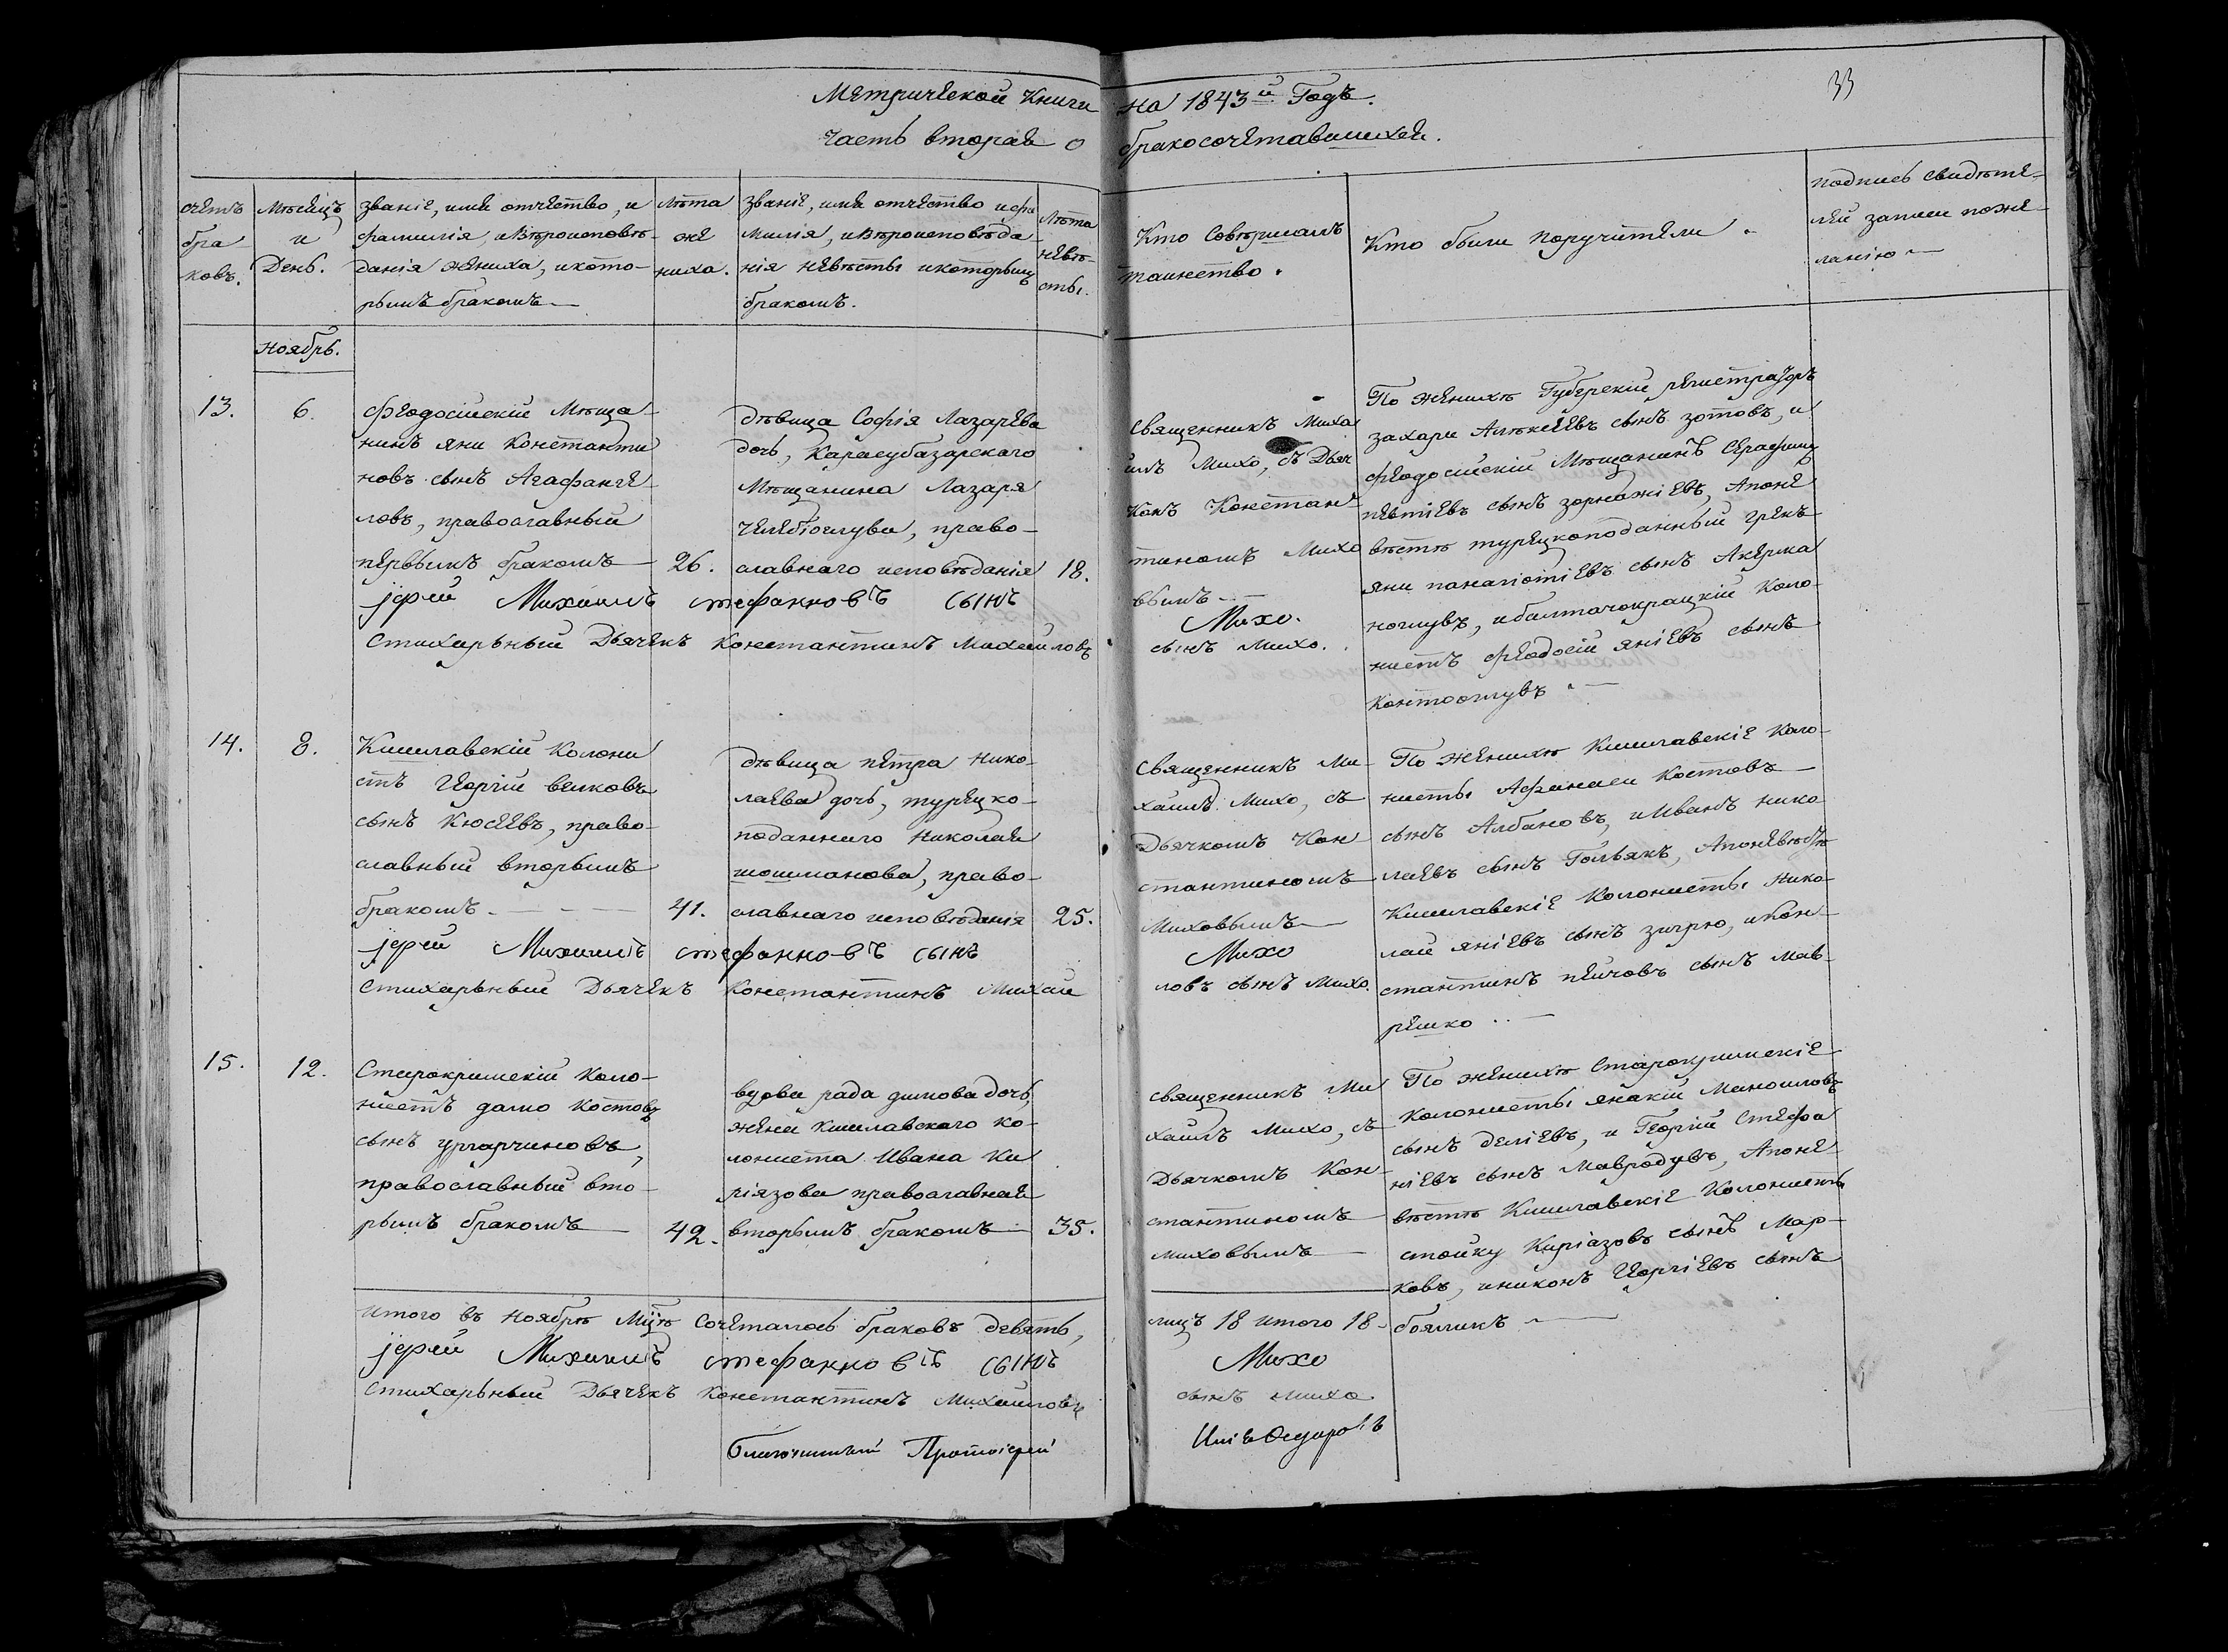 Метрической Книги на 1843й Годъ.
33
Часть вторая о бракосочетавшихся.
счетъ
бра
ковъ.
Мѣсяцъ
и
День.
званіе, имя отчество, и
фамилія, и вѣроисповѣ-
данія жениха, и кото-
рымъ бракомъ
Лѣта
же
ниха.
званіе, имя отчество и фа
милія, и вѣроисповѣда-
нія невѣсты и которымъ
бракомъ.
Лѣта
невѣ-
сты.
Кто Совершалъ
таинство.
Кто были поручители
подпись свидѣте-
лей записи по же-
ланію
Ноябрь.
13.
6.
Феодосійскій Мѣща-
нинъ яни Константи
новъ сынъ Агафанге-
ловъ, православный
первымъ бракомъ
26.
дѣвица Софія Лазарева
дочь, Карасубазарскаго
Мѣщанина Лазаря
Челебіоглува, право-
славнаго исповѣданія
18.
Священникъ Миха
илъ Михо, съ Дьяч
комъ Констан-
тиномъ Михо
вымъ
По женихѣ Губернскій регистраторъ
захари Алексѣевъ сынъ зотовъ, и
феодосійскій Мѣщанинъ Серафимъ
пентіевъ сынъ зорнажіевъ, Апоне
вѣстѣ турецкоподанный грекъ
яни панагіотіевъ сынъ Акерма
ноглувъ, и балтачокрацкій Коло-
нистъ феодосій яніевъ сынъ
Контооглувъ
іерей Михаилъ стефановъ сынъ Михо.
Стихарьный Дьячекъ Константинъ Михайловъ сынъ Михо.
14.
8.
Кишлавскій Колони
стъ Георгій велковъ
сынъ Кюсеевъ, право-
славный вторымъ
бракомъ
41.
дѣвица петра Нико-
лаева дочь, турецко-
поданнаго Николая
шошманова, право-
славнаго исповѣданія
25.
Священникъ Ми-
хаилъ Михо, съ
Дьячкомъ Кон-
стантиномъ
Миховымъ
По женихѣ Кишлавскіе Коло-
нисты Афанаси Костовъ
сынъ Албановъ, и Иванъ нико
лаевъ сынъ Гольякъ, Апоневѣстѣ
Кишлавскіе Колонисты Нико-
лай яніевъ сынъ згуро, и Кон-
стантинъ пейчовъ сынъ Мав-
решко
іерей Михаилъ стефановъ сынъ Михо
Стихарьный Дьячекъ Константинъ Михай ловъ сынъ Михо.
15.
12.
Старокримскій Коло-
нистъ дамо Костовъ
сынъ ургарчиновъ,
православный вто-
рымъ бракомъ
42.
вдова рада димова дочь,
жена Кишлавскаго Ко-
лониста Ивана Ки
ріязова православная
вторымъ бракомъ
35.
священникъ Ми
хаилъ Михо, съ
Дьячкомъ Кон-
стантиномъ
миховымъ
По женихѣ Старокримскіе
Колонисты янакій Маноиловъ
сынъ деліевъ, и Георгій Стефа
ніевъ сынъ Мавродувъ, Апоне
вѣстѣ Кишлавскіе Колонисты
стойку Киріазовъ сынъ Мар-
ковъ, и никонъ Георгіевъ сынъ
бояликъ
итого въ Ноябрѣ Мцѣ Сочеталось браковъ девять, лицъ 18 итого 18
іерей Михаилъ стефановъ сынъ Михо
Стихарьный Дьячекъ Константинъ Михайловъ сынъ Михо.
Благочинный Протоіерей